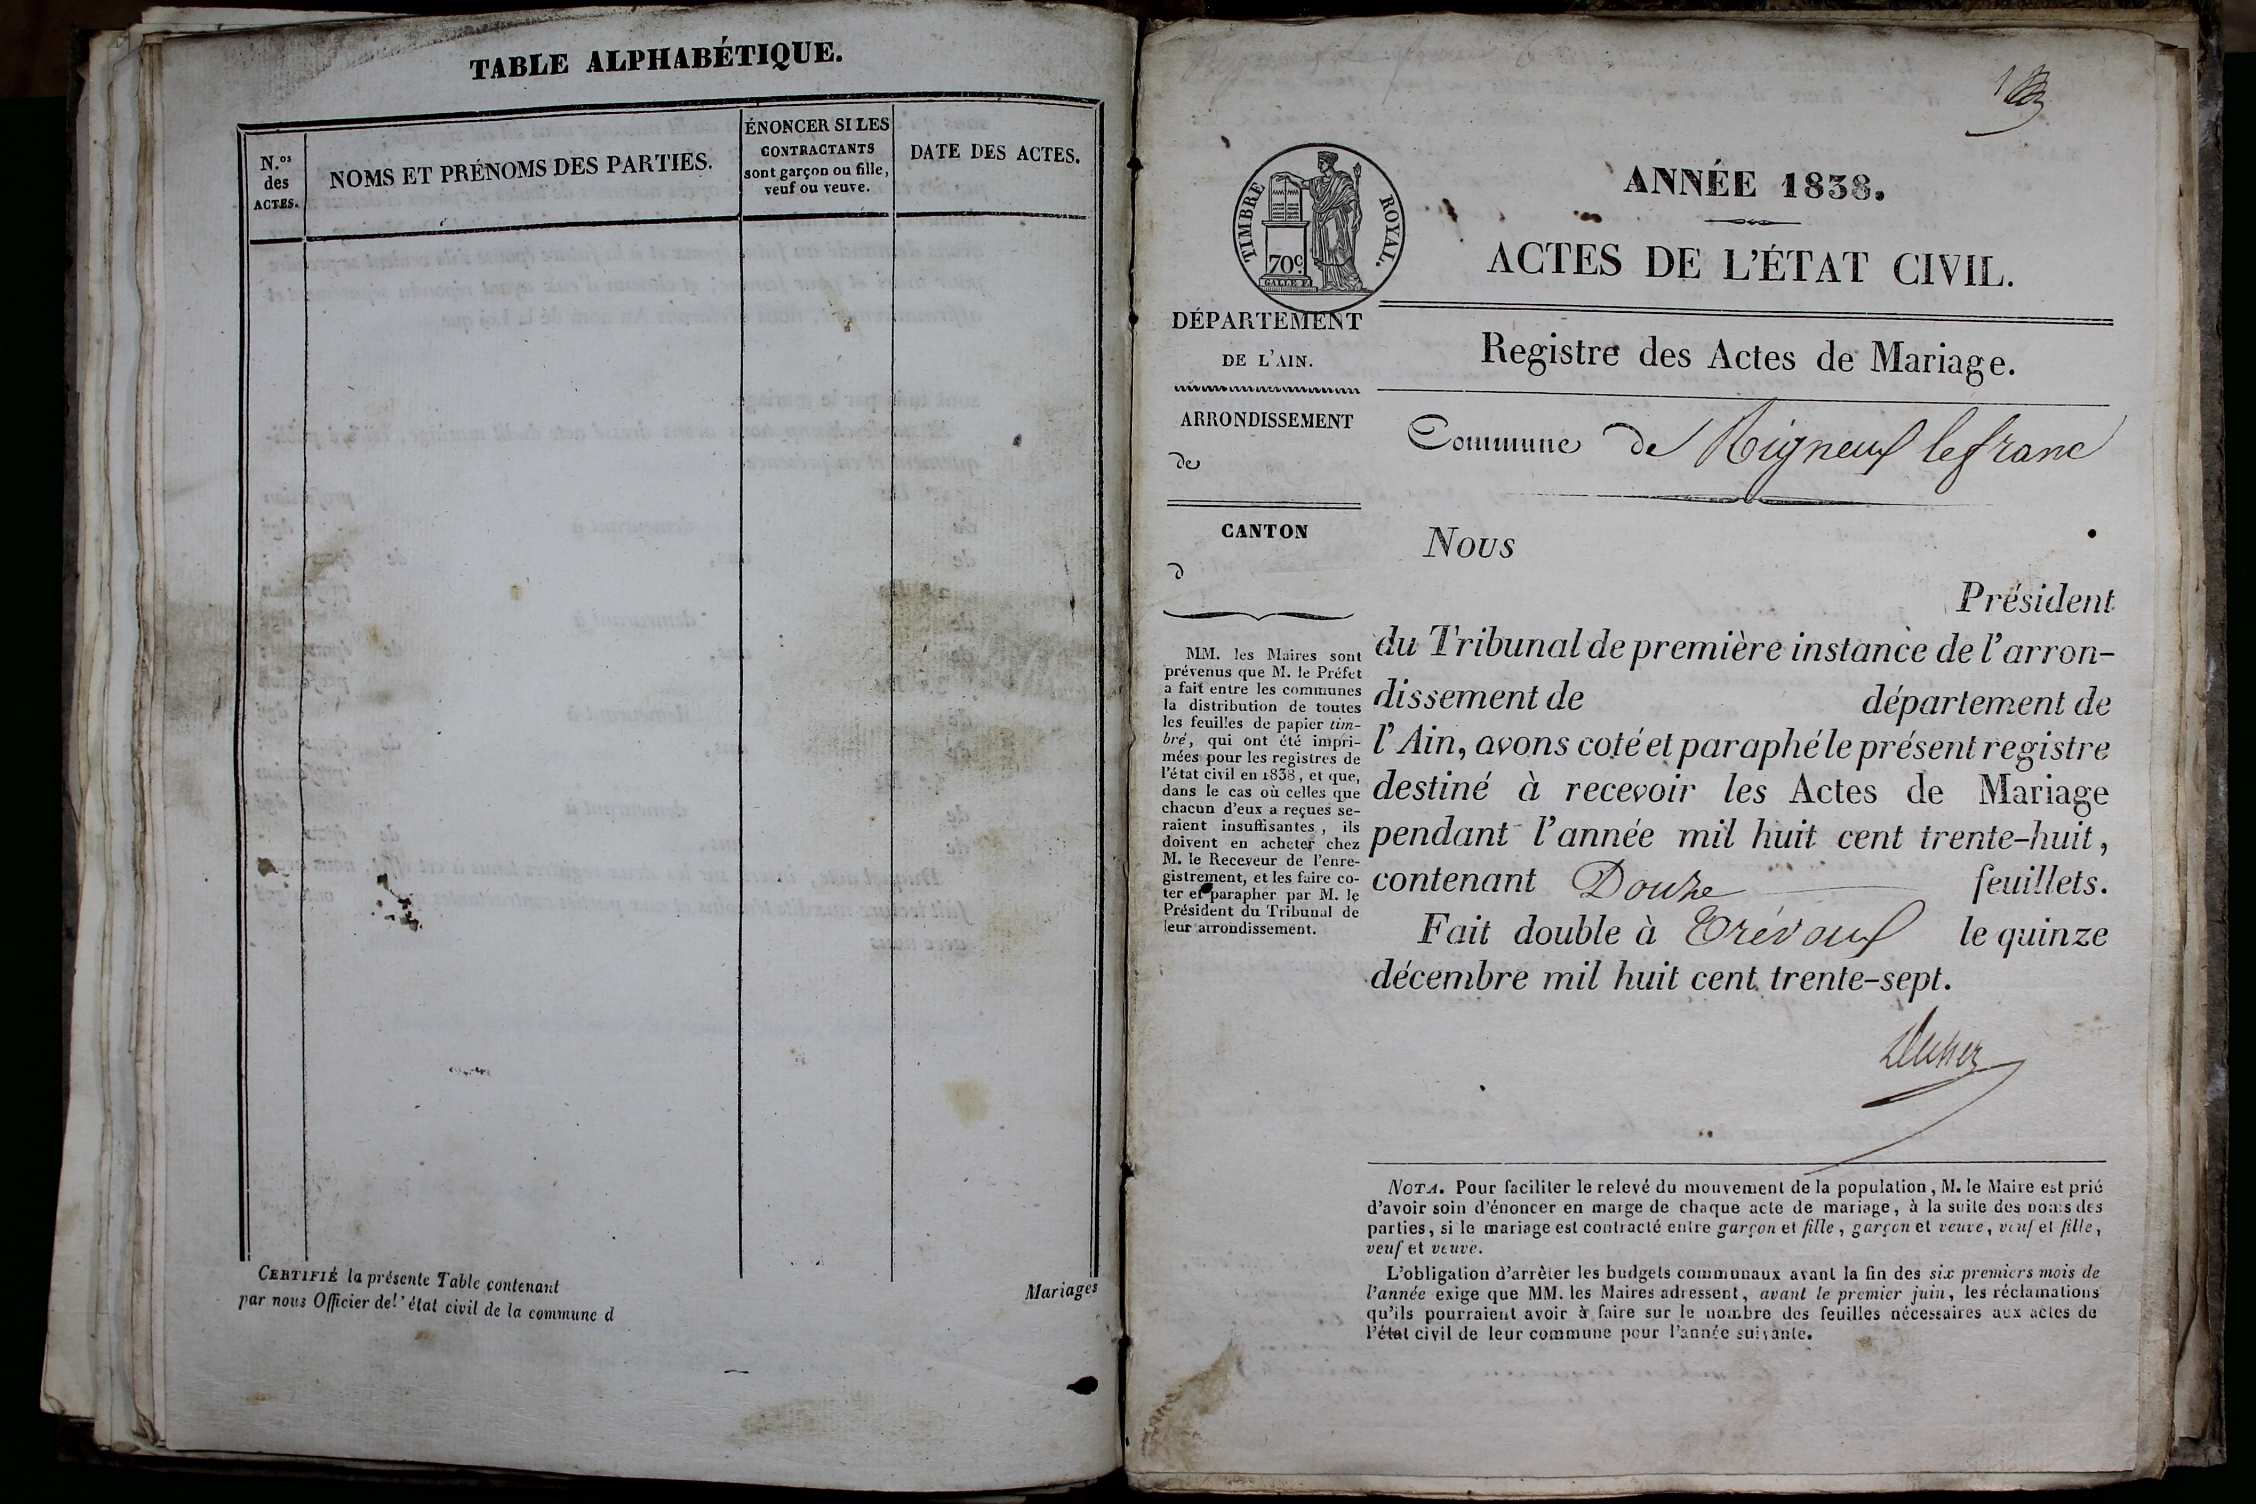 TABLE ALPHABÉTIQUE.
N.os
des
ACTES.
NOMS ET PRÉNOMS DES PARTIES.
ÉNONCER SI LES
CONTRACTANTS
sont garçon ou fille,
veuf ou veuve.
DATE DES ACTES.
CERTIFIÉ la présente Table contenant
Mariages
par nous Officier de l'état civil de la commune d
1
TIMBRE ROYAL.
70c.
ANNÉE 1838.
ACTES DE L'ÉTAT CIVIL.
DÉPARTEMENT
DE L'AIN.
ARRONDISSEMENT
de
CANTON
d
MM. les Maires sont
prévenus que M. le Préfet
a fait entre les communes
la distribution de toutes
les feuilles de papier tim-
bré, qui ont été impri-
mées pour les registres de
l'état civil en 1838, et que,
dans le cas où celles que
chacun d'eux a reçues se-
raient insuffisantes, ils
doivent en acheter chez
M. le Receveur de l'enre-
gistrement, et les faire co-
ter et parapher par M. le
Président du Tribunal de
leur arrondissement.
Registre des Actes de Mariage.
Commune de Rigneux le franc
Nous
Président
du Tribunal de première instance de l'arron-
dissement de département de
l'Ain, avons coté et paraphé le présent registre
destiné à recevoir les Actes de Mariage
pendant l'année mil huit cent trente-huit,
contenant Douze feuillets.
Fait double à Trévoux le quinze
décembre mil huit cent trente-sept.
NOTA. Pour faciliter le relevé du mouvement de la population, M. le Maire est prié
d'avoir soin d'énoncer en marge de chaque acte de mariage, à la suite des noms des
parties, si le mariage est contracté entre garçon et fille, garçon et veuve, veuf et fille,
veuf et veuve.
L'obligation d'arrêter les budgets communaux avant la fin des six premiers mois de
l'année exige que MM. les Maires adressent, avant le premier juin, les réclamations
qu'ils pourraient avoir à faire sur le nombre des feuilles nécessaires aux actes de
l'état civil de leur commune pour l'année suivante.